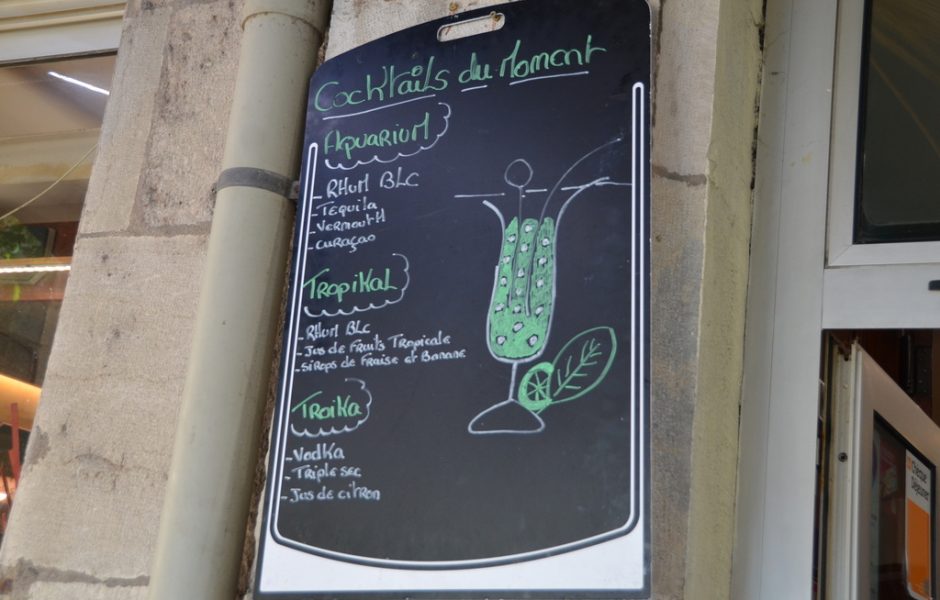 Cocktails du Moment
Aquarium
- Rhum BLC
- Tequila
- Vermouth
- Curaçao
Tropikal
- Rhum BLc
- Jus de Fruits Tropicale
- Sirops de Fraise et Banane
Troika
- Vodka
- Triple sec
- Jus de citron
Chèque
Déjeuner